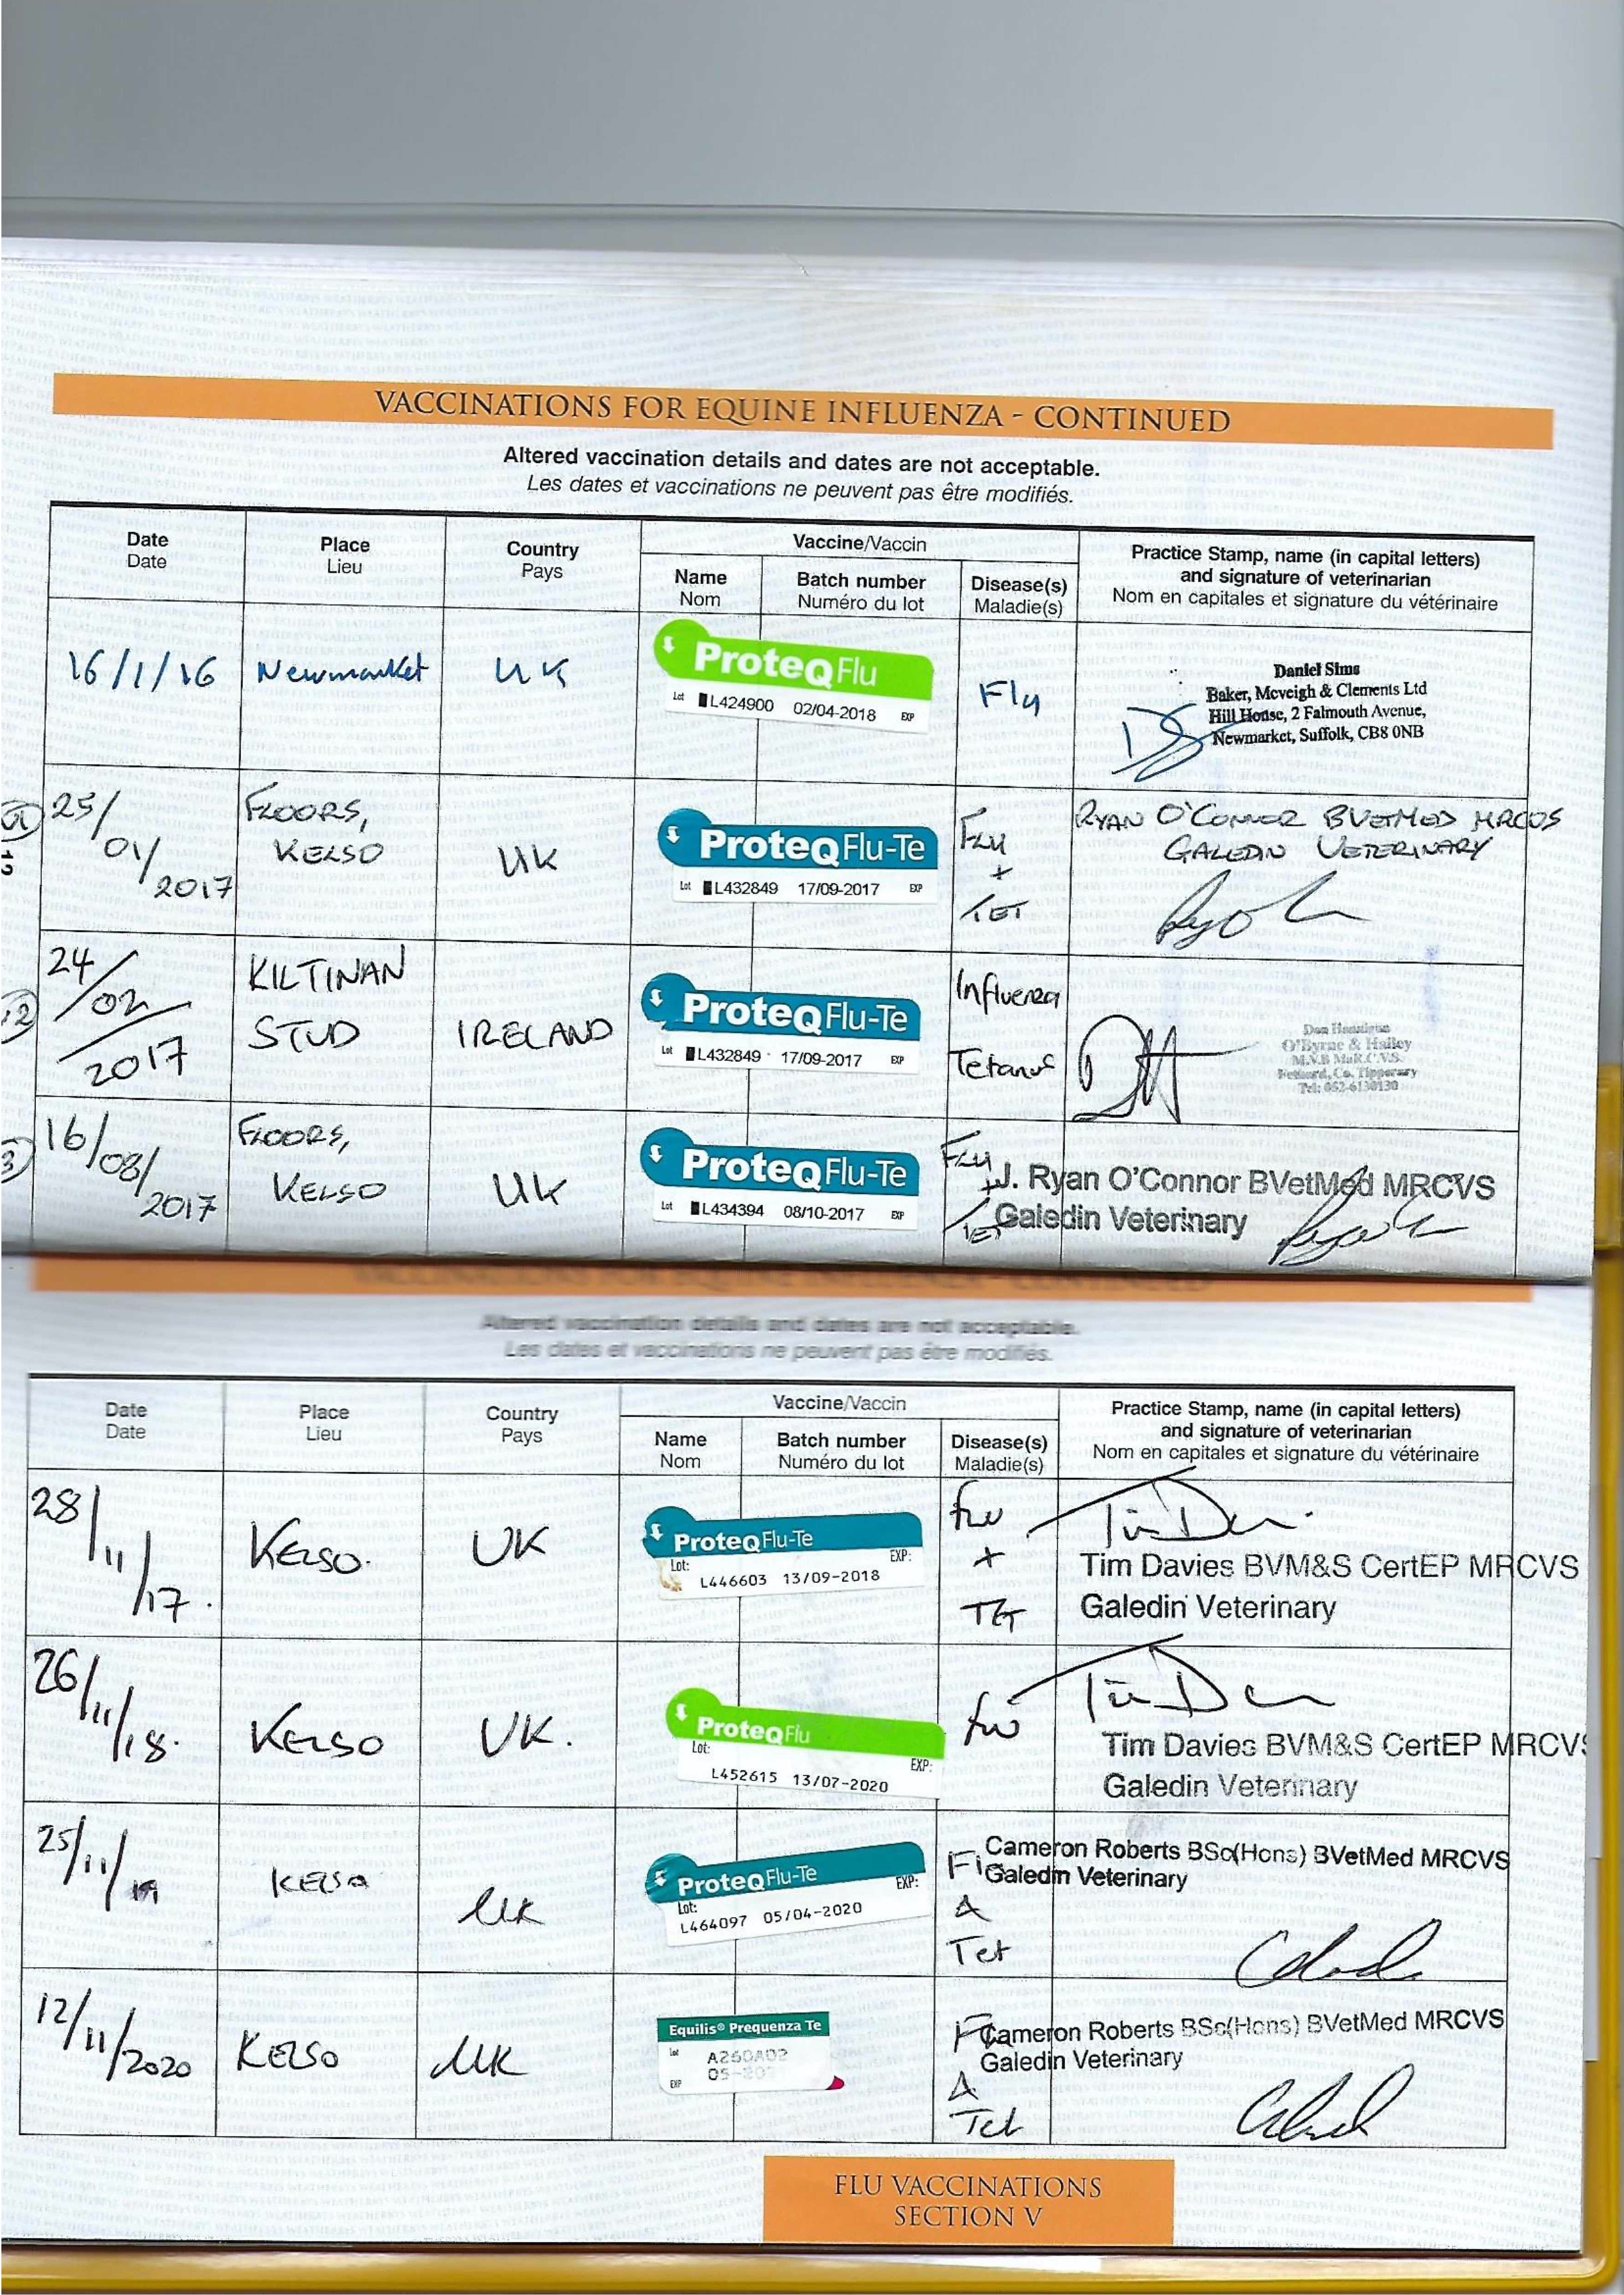 VACCINATIONS FOR EQUINE INFLUENZA - CONTINUED
Altered vaccination details and dates are not acceptable.
Les dates et vaccinations ne peuvent pas être modifiés.
Date
Date
Place
Lieu
Country
Pays
Vaccine/Vaccin
Name
Nom
Batch number
Numéro du lot
Disease(s)
Maladie(s)
Practice Stamp, name (in capital letters)
and signature of veterinarian
Nom en capitales et signature du vétérinaire
16/1/16
Newmarket
UK
ProteqFlu
Lot L424900 02/04-2018 EXP
Flu
Daniel Sims
Baker, Mcveigh & Clements Ltd
Hill House, 2 Falmouth Avenue,
Newmarket, Suffolk, CB8 0NB
25/
01/
2017
FLOORS,
KELSO
UK
ProteqFlu-Te
Lot L432849 17/09-2017 EXP
FLU
+
TET
RYAN O'CONNOR BVETMED MRCVS
GALEDIN VETERINARY
24/
02
2017
KILTINAN
STUD
IRELAND
ProteqFlu-Te
Lot L432849 17/09-2017 EXP
Influenza
Tetanus
O'Byrne & Halley
M.V.B MaR.C.V.S.
Fethard, Co. Tipperary
Tel: 052-6130130
16/
08/
2017
FLOORS,
KELSO
UK
ProteqFlu-Te
Lot L434394 08/10-2017 EXP
FLU
+
TET
J. Ryan O'Connor BVetMed MRCVS
Galedin Veterinary
Altered vaccination details and dates are not acceptable.
Les dates et vaccinations ne peuvent pas être modifiés.
Date
Date
Place
Lieu
Country
Pays
Vaccine/Vaccin
Name
Nom
Batch number
Numéro du lot
Disease(s)
Maladie(s)
Practice Stamp, name (in capital letters)
and signature of veterinarian
Nom en capitales et signature du vétérinaire
28/
11/
17.
KELSO.
UK
ProteqFlu-Te
Lot: EXP:
L446603 13/09-2018
FLU
+
TET
Tim Davies BVM&S CertEP MRCVS
Galedin Veterinary
26/
11/
18.
KELSO
UK.
ProteqFlu
Lot: EXP:
L452615 13/07-2020
FLU
Tim Davies BVM&S CertEP MRCVS
Galedin Veterinary
25/
11/
19
KELSO
UK
ProteqFlu-Te
Lot: EXP:
L464097 05/04-2020
&
Tet
Cameron Roberts BSc(Hons) BVetMed MRCVS
Galedin Veterinary
12/
11/
2020
KELSO
UK
Equilis® Prequenza Te
Lot A260A02
EXP
&
Tet
Cameron Roberts BSc(Hons) BVetMed MRCVS
Galedin Veterinary
FLU VACCINATIONS
SECTION V